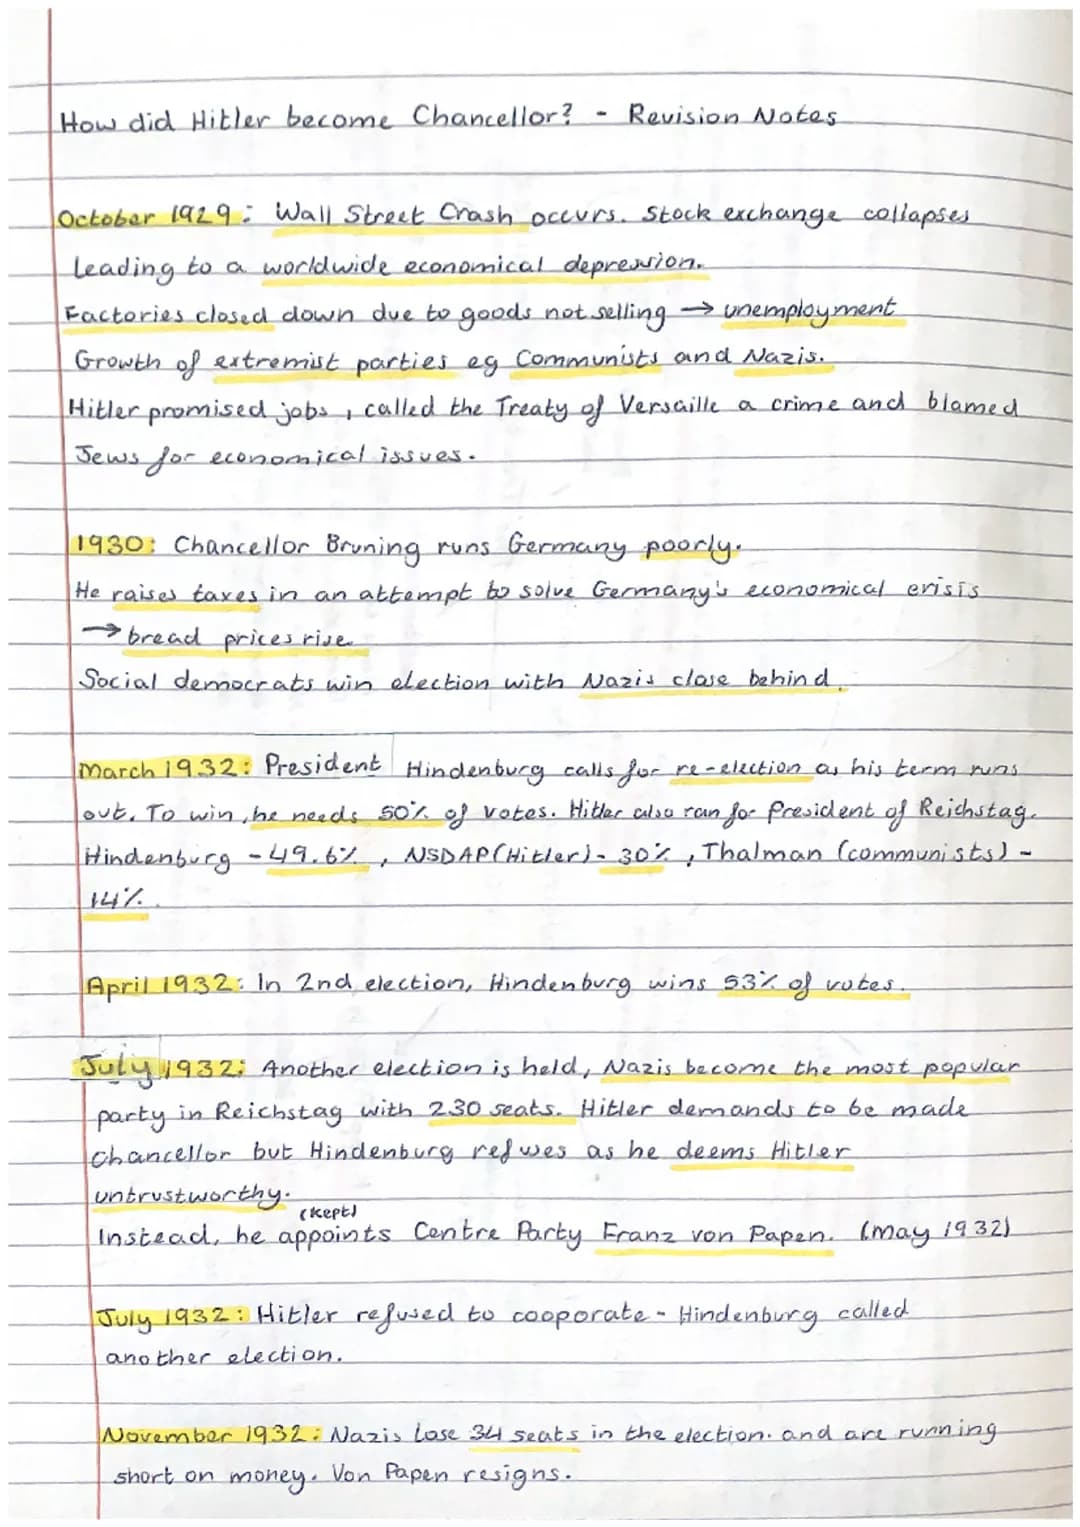 How did Hitler become Chancellor? - Revision Notes
October 1929: Wall Street Crash occurs. Stock exchange collapses
leading to a worldwide economical depression.
Factories closed down due to goods not selling → unemployment
Growth of extremist parties eg Communists and Nazis.
Hitler promised jobs, called the Treaty of Versaille a crime and blamed
Jews for economical issues.
1930: Chancellor Bruning runs Germany poorly.
He raises taxes in an attempt to solve Germany's economical crisis
→ bread prices rise
Social democrats win election with Nazis close behind.
March 1932: President Hindenburg calls for re-election as his term runs
out. To win, he needs 50% of votes. Hitler also ran for President of Reichstag.
Hindenburg - 49.6%, NSDAP (Hitler) - 30%, Thalman (communists) -
14%.
April 1932: In 2nd election, Hindenburg wins 53% of votes.
July 1932: Another election is held, Nazis become the most popular
party in Reichstag with 230 seats. Hitler demands to be made
chancellor but Hindenburg refuses as he deems Hitler
untrustworthy.
(kept)
Instead, he appoints Centre Party Franz von Papen. (may 1932)
July 1932: Hitler refused to cooporate - Hindenburg called
another election.
November 1932: Nazis lose 34 seats in the election. and are running
short on money. Von Papen resigns.